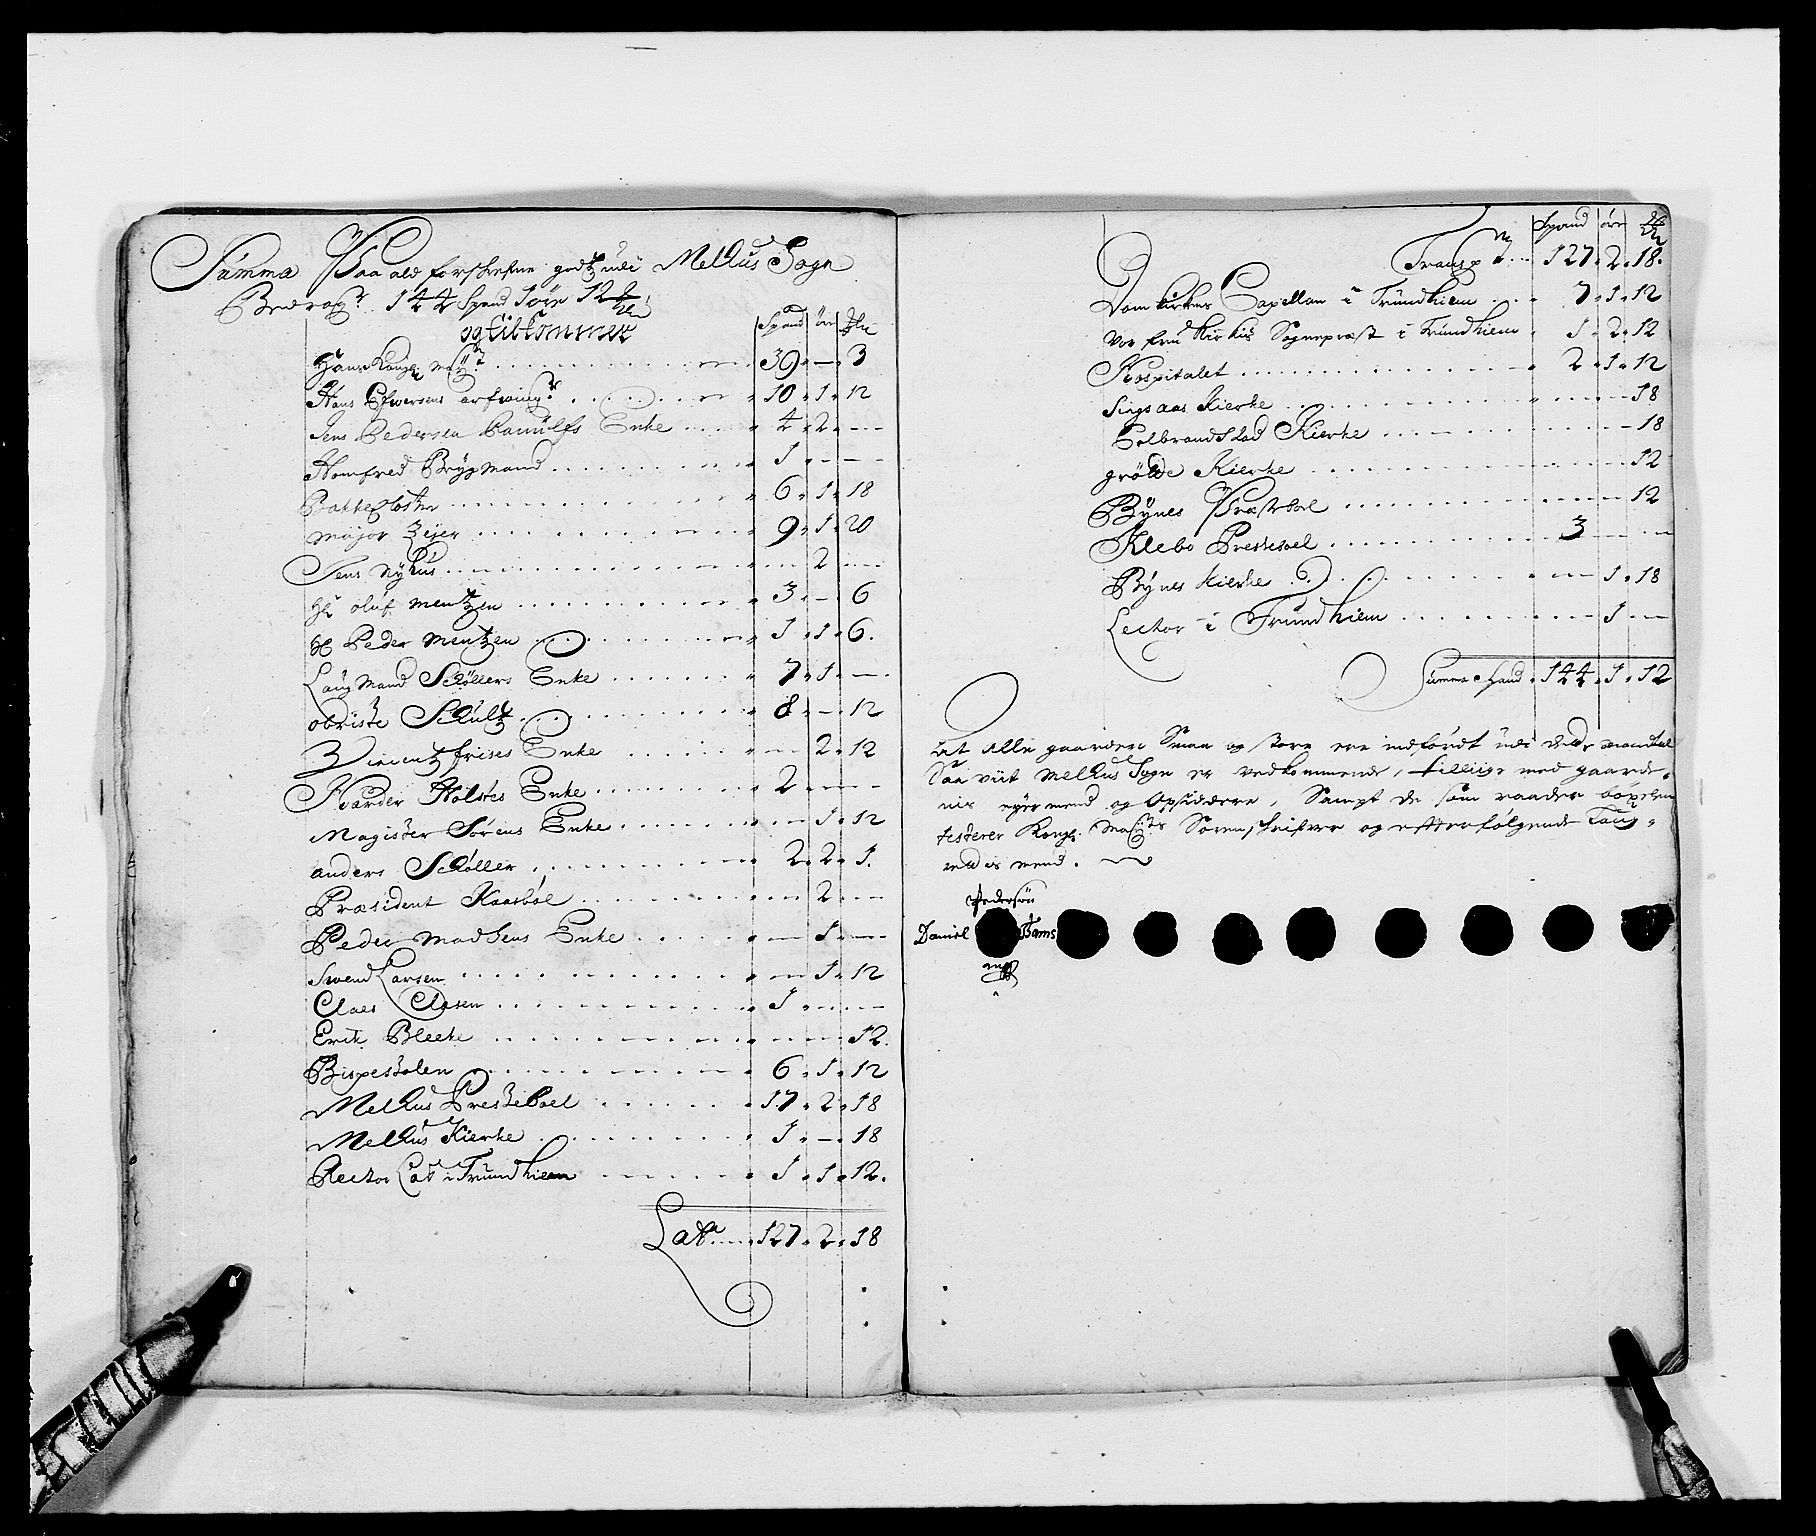 Summa Paa ald forskrefne godz udi Melhus Sogn
Bedrag.r 144 Spand 1 øre 12 
og tilkommer
Spand øre
Hans Kongl: May.t 39 - 3
Hans Efwersens arfwing.r 10 1 12
Jens Pedersen Samülfs Enke 4 2 -
Homfred Brygmand 1 - -
Bakke Closter 6 1 18
Major 9 1 20
Jens Nyhus - 2 -
Hr olüf Mentzen 3 - 6
Hr Peder Mentzen 1 1 6.
Laug Mand Schøllers Enke 7 1 -
obriste Schultz 8 - 12
Vincentz frises Enke - 2 12
Harder Holstes Enke 2 - -
Magister Sørens Enke - 1 12
anders Schøller 2 2 1.
Præsident Kaasbøl - 2 -
Peder Madsens Enke - 1 -
Swend Larsen - 1 12
Claes Clasen 1 - -
Erik Bleeke - - 12.
Bispestolen 6 1 12
Melhus Presteboel 17 2 18
Melhus Kierke 1 - 18
Rector Lod i Trundhiem 1 1 12.
Lat.a 127 2 18
Spand øre
Transp.t 127 2 18.
Domkirkens Capellan i Trundhiem 7 1 12
Vor frue Kirkis Sogneprest i Trundhiem 1 2 12
Hospitalet 2 1 12
Singsaas Kierke 18
Colbrandstad Kierke 18
grötte Kierke 12
Bynes Præsteboel 12
Klebo Presteboel 3 - -
Bynes Kierke - 1 18
Lector i Trundhiem 1 -
Summa Spand 144 1 12
At alle gaarder Smaa og store ere indfördt udi dette mandtal
Saa viit Melhus Sogn er vedkommende, tillige med gaarde-
nis eyermend og Opsiddere, Sampt de som raader böxelen
testerer Kongl: May.ts Sorenskrifver og efterfølgende Laug-
rettis mend.
Pedersön
Daniel Bams